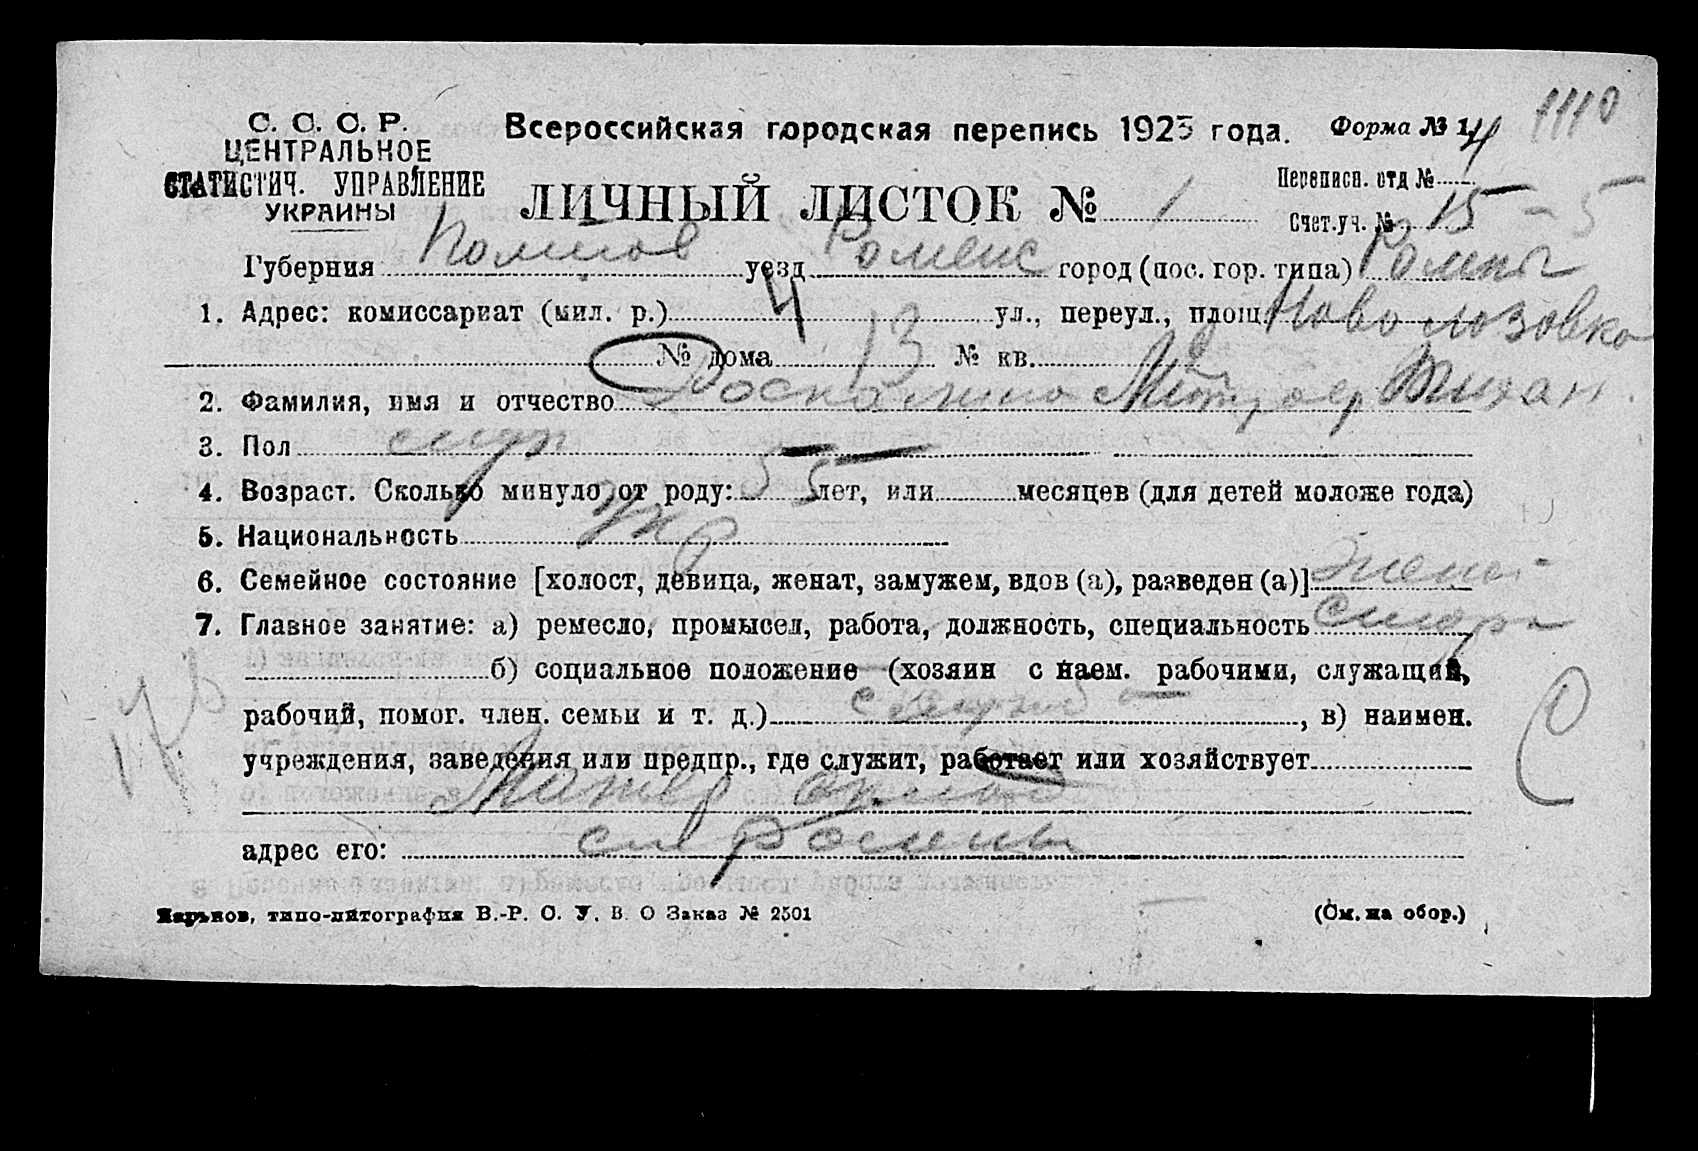 1110
С. С. С. Р.
ЦЕНТРАЛЬНОЕ
СТАТИСТИЧ. УПРАВЛЕНИЕ
УКРАИНЫ
Всероссийская городская перепись 1923 года.
Форма № 14
Переписн. отд №
ЛИЧНЫЙ ЛИСТОК № 1
Счет. уч. № 15 - 5
Губерния Полтов уезд Роменс город (пос. гор. типа) Ромны
1. Адрес: комиссариат (мил. р.) 4 ул., переул., площ. Новолозовка
№ дома 13 № кв.
2. Фамилия, имя и отчество
3. Пол муж
4. Возраст. Сколько минуло от роду: 55 лет, или месяцев (для детей моложе года)
5. Национальность Укр
6. Семейное состояние [холост, девица, женат, замужем, вдов (а), разведен (а)] Женат
7. Главное занятие: а) ремесло, промысел, работа, должность, специальность
б) социальное положение (хозяин с наем. рабочими, служащий,
рабочий, помог. член. семьи и т. д.) служ , в) наимен.
учреждения, заведения или предпр., где служит, работает или хозяйствует
Матер склад
адрес его: ст Ромны
Харьков, типо-литография В.-Р. С. У. В. О Заказ № 2501
(См. на обор.)